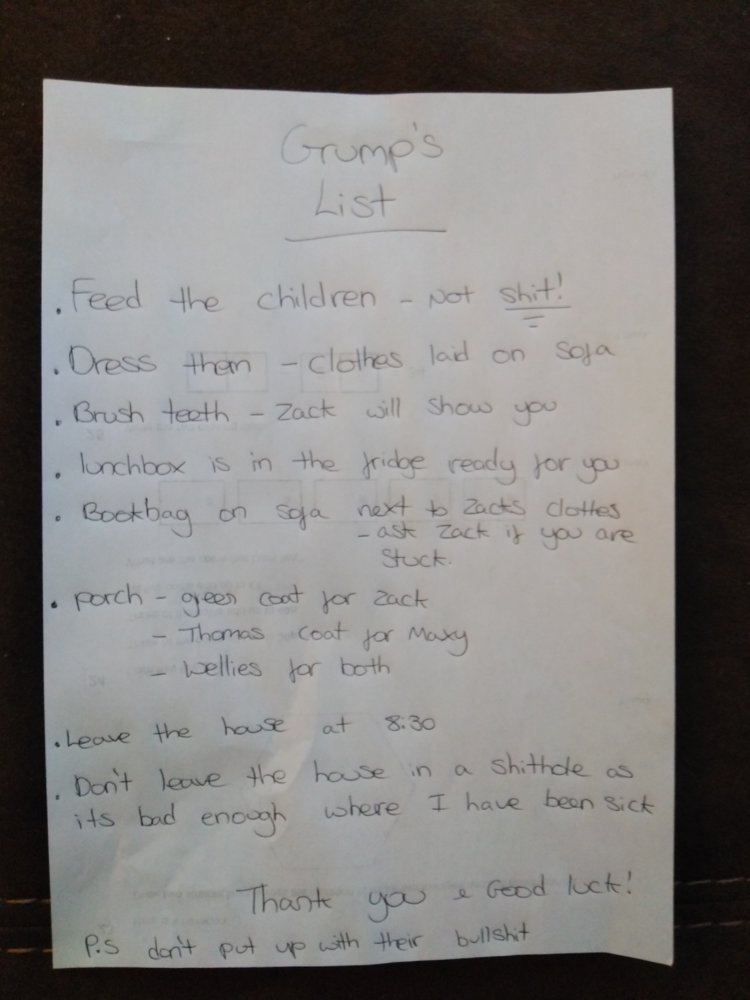 Grump's
List
. Feed the children - Not shit!
. Dress them - clothes laid on sofa
. Brush teeth - Zack will show you
. lunchbox is in the fridge ready for you
. Bookbag on sofa next to Zacks clothes
- ask Zack if you are
stuck.
. porch - green coat for Zack
- Thomas coat for Maxy
- Wellies for both
. Leave the house at 8:30
. Don't leave the house in a shithole as
its bad enough where I have been sick
Thank you & Good luck!
P.S don't put up with their bullshit